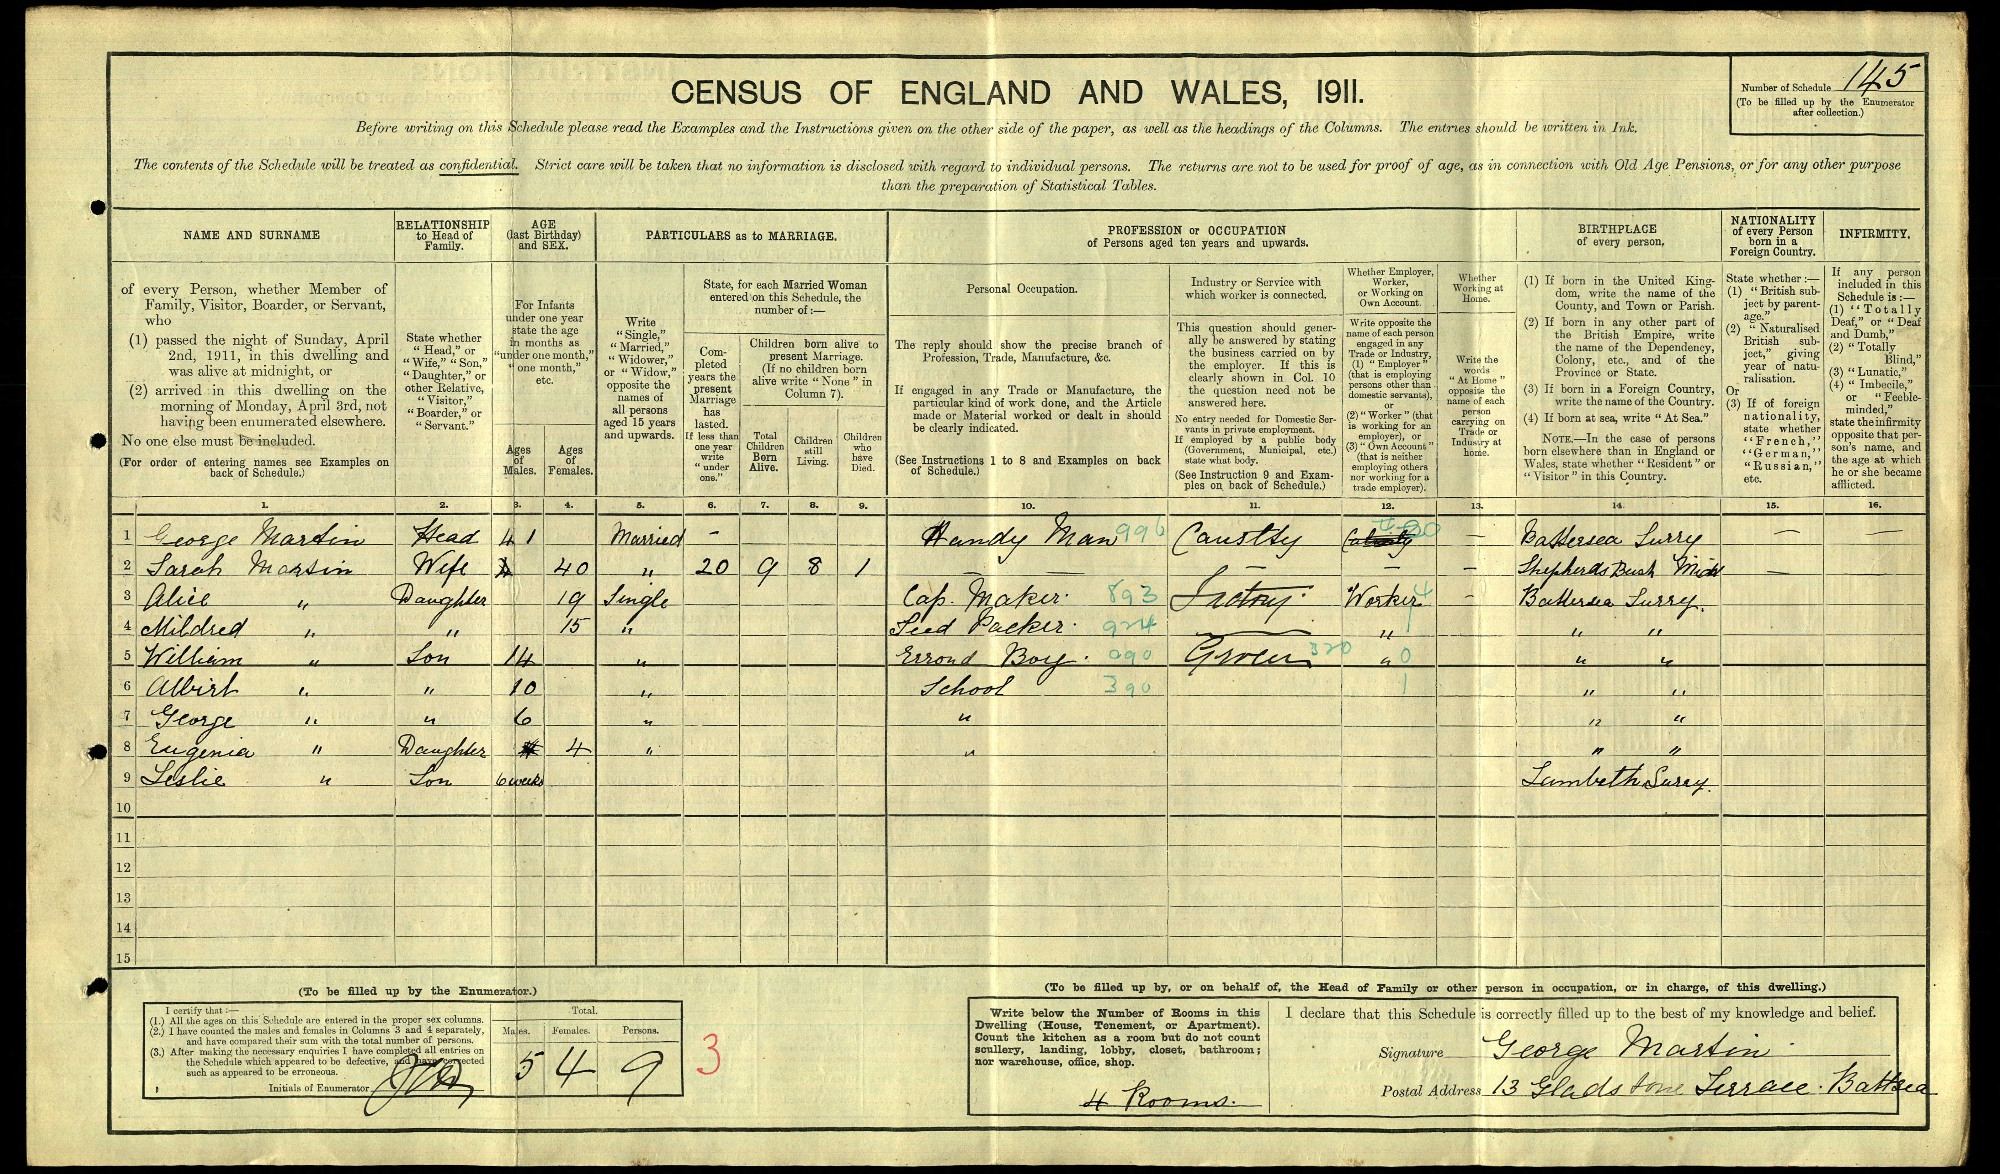 CENSUS OF ENGLAND AND WALES, 1911.
Number of Schedule 145
(To be filled up by the Enumerator after collection.)
Before writing on this Schedule please read the Examples and the Instructions given on the other side of the paper, as well as the headings of the Columns. The entries should be written in Ink.
The contents of the Schedule will be treated as confidential. Strict care will be taken that no information is disclosed with regard to individual persons. The returns are not to be used for proof of age, as in connection with Old Age Pensions, or for any other purpose
than the preparation of Statistical Tables.
NAME AND SURNAME
of every Person, whether Member of Family, Visitor, Boarder, or Servant, who
(1) passed the night of Sunday, April 2nd, 1911, in this dwelling and was alive at midnight, or
(2) arrived in this dwelling on the morning of Monday, April 3rd, not having been enumerated elsewhere.
No one else must be included.
(For order of entering names see Examples on back of Schedule.)
RELATIONSHIP to Head of Family.
State whether "Head," or "Wife," "Son," "Daughter," or other Relative, "Visitor," "Boarder," or "Servant."
AGE (last Birthday) and SEX.
For Infants under one year state the age in months as "under one month," "one month," etc.
Ages of Males.
Ages of Females.
PARTICULARS as to MARRIAGE.
Write "Single," "Married," "Widower," or "Widow," opposite the names of all persons aged 15 years and upwards.
State, for each Married Woman entered on this Schedule, the number of:—
Completed years the present Marriage has lasted. If less than one year write "under one."
Children born alive to present Marriage. (If no children born alive write "None" in Column 7).
Total Children Born Alive.
Children still Living.
Children who have Died.
PROFESSION or OCCUPATION
of Persons aged ten years and upwards.
Personal Occupation.
The reply should show the precise branch of Profession, Trade, Manufacture, &c.
If engaged in any Trade or Manufacture, the particular kind of work done, and the Article made or Material worked or dealt in should be clearly indicated.
(See Instructions 1 to 8 and Examples on back of Schedule.)
Industry or Service with which worker is connected.
This question should generally be answered by stating the business carried on by the employer. If this is clearly shown in Col. 10 the question need not be answered here.
No entry needed for Domestic Servants in private employment. If employed by a public body (Government, Municipal, etc.) state what body.
(See Instruction 9 and Examples on back of Schedule.)
Whether Employer, Worker, or Working on Own Account.
Write opposite the name of each person engaged in any Trade or Industry, (1) "Employer" (that is employing persons other than domestic servants), or (2) "Worker" (that is working for an employer), or (3) "Own Account" (that is neither employing others nor working for a trade employer).
Whether Working at Home.
Write the words "At Home" opposite the name of each person carrying on Trade or Industry at home.
BIRTHPLACE of every person.
(1) If born in the United Kingdom, write the name of the County, and Town or Parish.
(2) If born in any other part of the British Empire, write the name of the Dependency, Colony, etc., and of the Province or State.
(3) If born in a Foreign Country, write the name of the Country.
(4) If born at sea, write "At Sea."
NOTE.—In the case of persons born elsewhere than in England or Wales, state whether "Resident" or "Visitor" in this Country.
NATIONALITY of every Person born in a Foreign Country.
State whether:—
(1) "British subject by parentage."
(2) "Naturalised British subject," giving year of naturalisation.
Or
(3) If of foreign nationality, state whether "French," "German," "Russian," etc.
INFIRMITY.
If any person included in this Schedule is:—
(1) "Totally Deaf," or "Deaf and Dumb,"
(2) "Totally Blind,"
(3) "Lunatic,"
(4) "Imbecile," or "Feeble-minded,"
state the infirmity opposite that person's name, and the age at which he or she became afflicted.
1. 2. 3. 4. 5. 6. 7. 8. 9. 10. 11. 12. 13. 14. 15. 16.
1 George Martin Head 41 Married - Handy Man 996 — Battersea Surry — —
2 Sarah Martin Wife 40 " 20 9 8 1 — — — — Shepherds Bush Midd —
3 Alice " Daughter 19 Single Cap. Maker. 893 Factory. Worker — Battersea Surry.
4 Mildred " " 15 " Seed Packer. 924 " " "
5 William " Son 14 " Errond Boy. 090 Grocer 320 " 0 " "
6 Albirt " " 10 " School 390 1 " "
7 George " " 6 " " " "
8 Eugenia " Daughter 4 " " " "
9 Leslie " Son 6 weeks Lambeth Surry.
10
11
12
13
14
15
(To be filled up by the Enumerator.)
I certify that:—
(1.) All the ages on this Schedule are entered in the proper sex columns.
(2.) I have counted the males and females in Columns 3 and 4 separately, and have compared their sum with the total number of persons.
(3.) After making the necessary enquiries I have completed all entries on the Schedule which appeared to be defective, and have corrected such as appeared to be erroneous.
Initials of Enumerator
Total.
Males. Females. Persons.
5 4 9
3
(To be filled up by, or on behalf of, the Head of Family or other person in occupation, or in charge, of this dwelling.)
Write below the Number of Rooms in this Dwelling (House, Tenement, or Apartment). Count the kitchen as a room but do not count scullery, landing, lobby, closet, bathroom; nor warehouse, office, shop.
4 Rooms.
I declare that this Schedule is correctly filled up to the best of my knowledge and belief.
Signature George Martin
Postal Address 13 Gladstone Terrace. Battsea